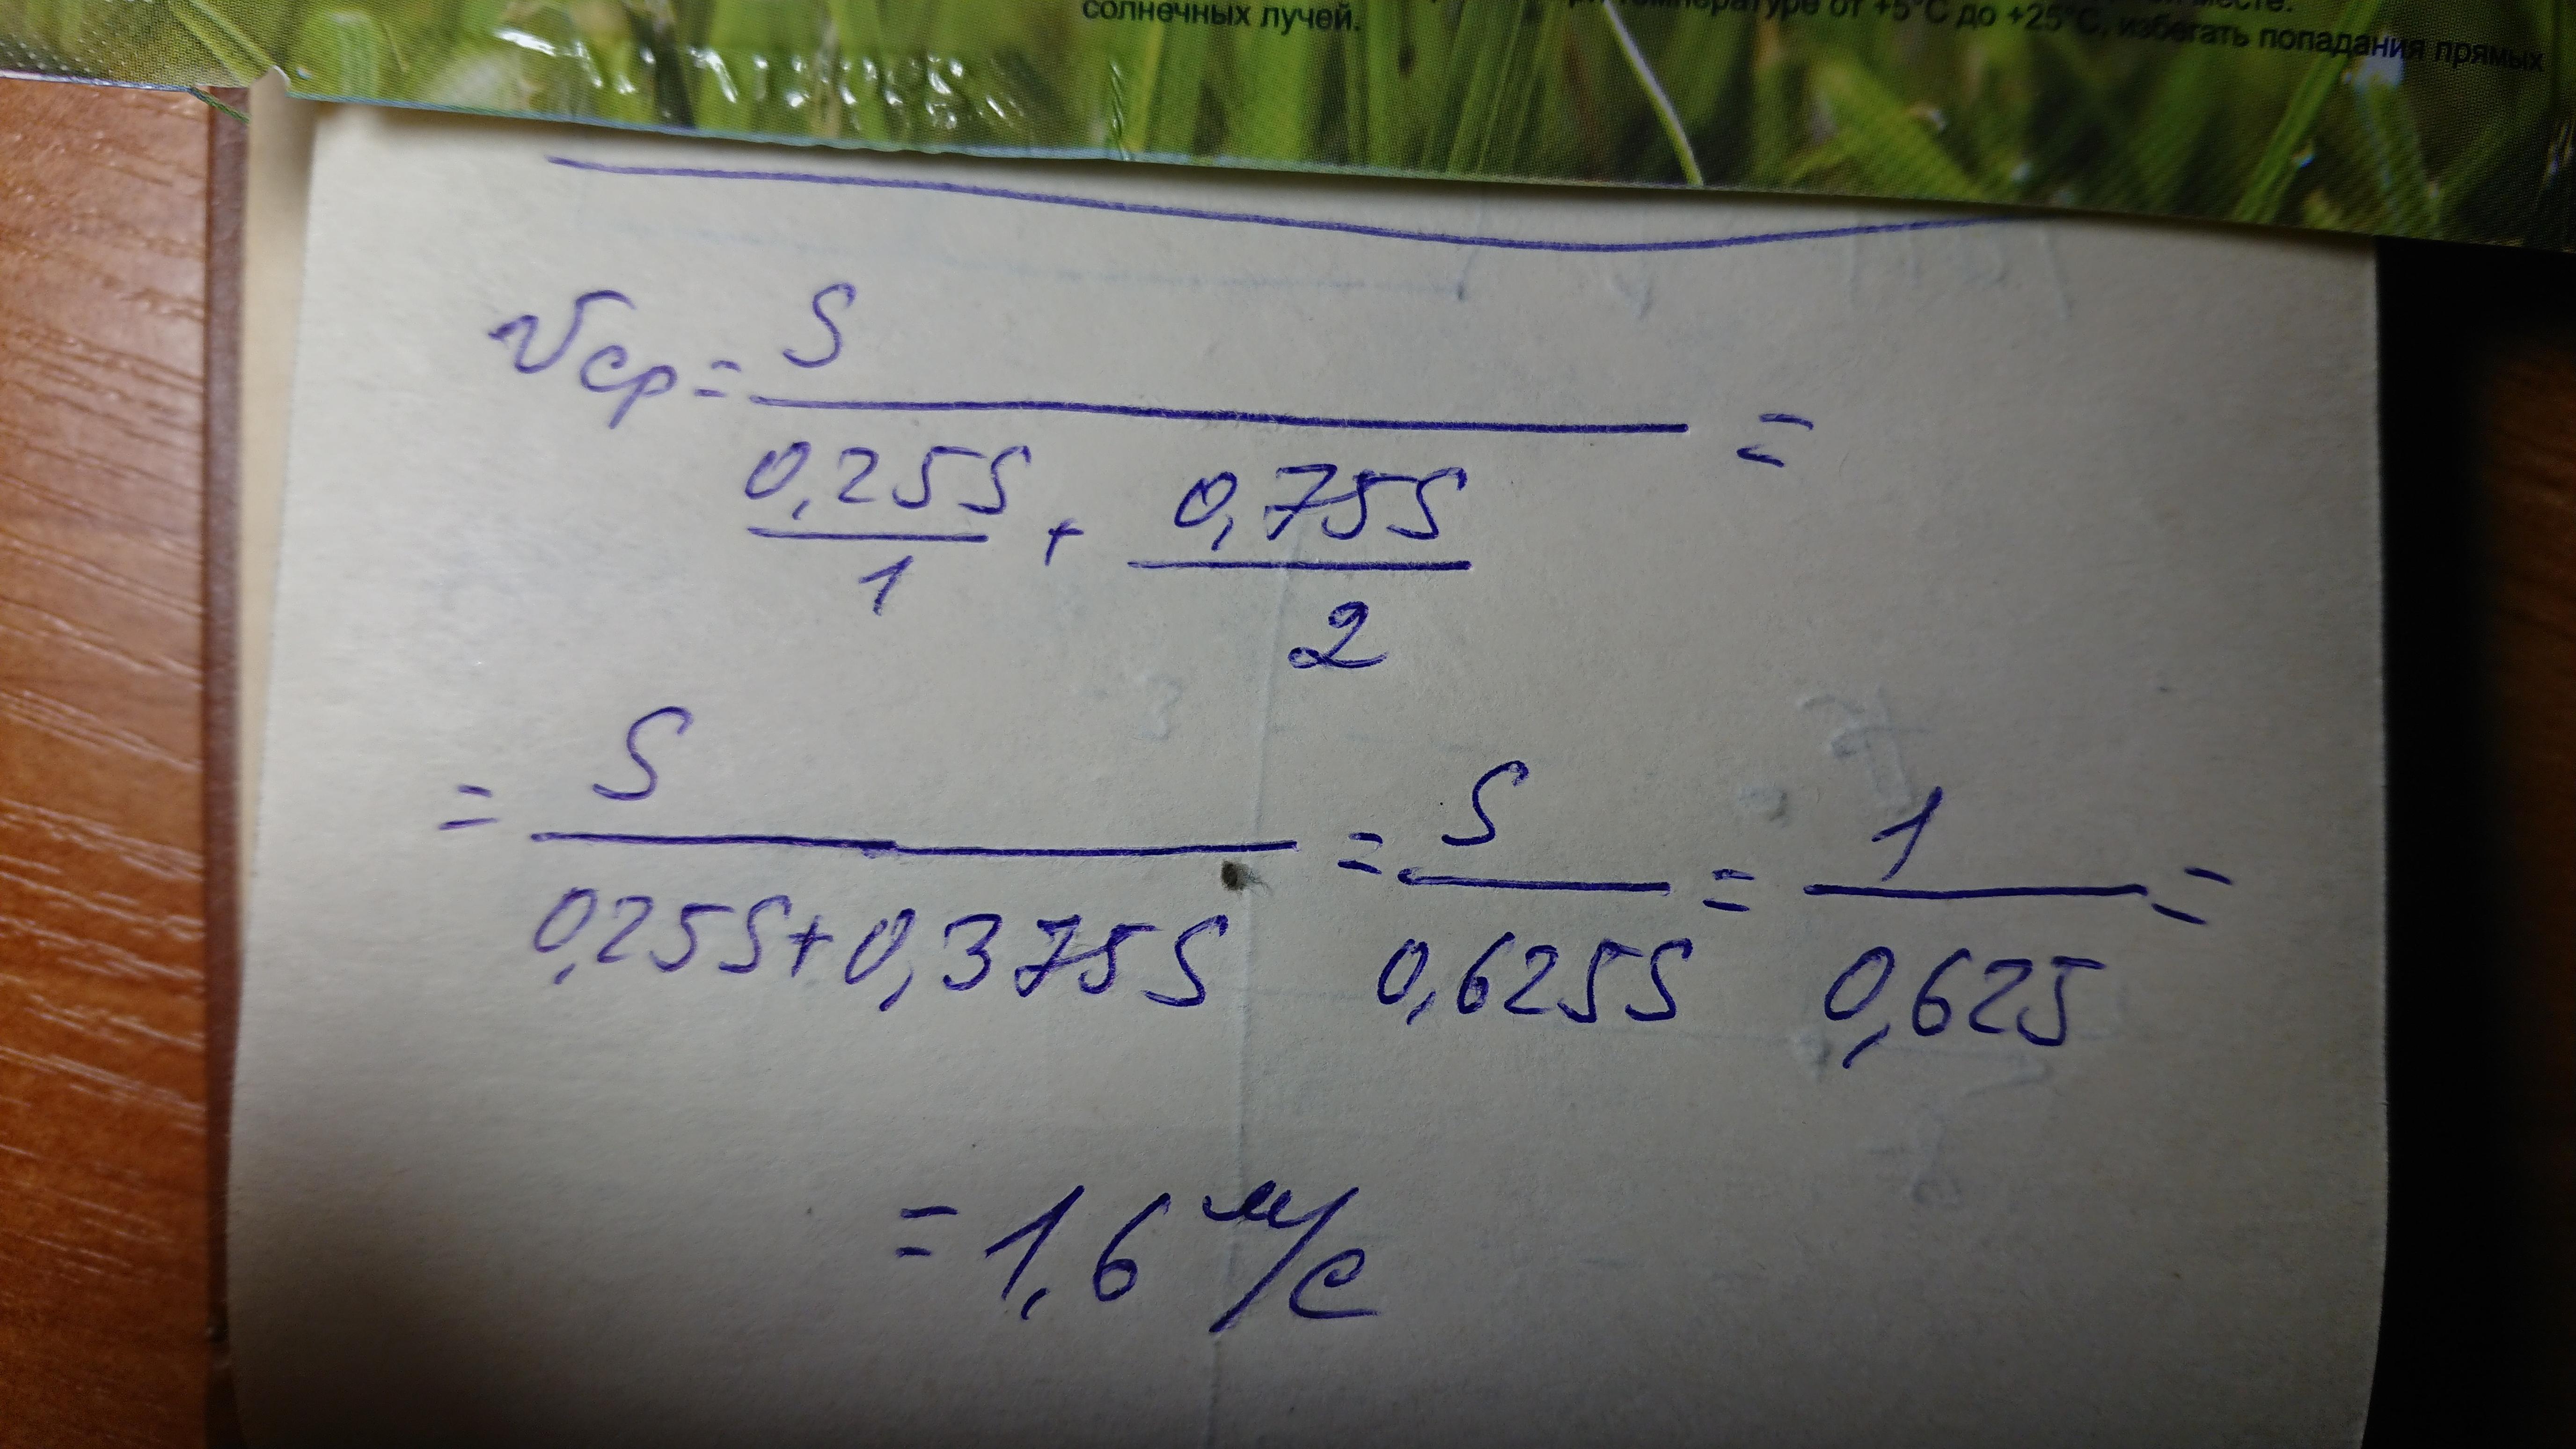 при температуре от +5°C до +25°C, избегать попадания прямых
солнечных лучей.
vср = S / (0,25S/1 + 0,75S/2) =
= S / (0,25S+0,375S) = S / 0,625S = 1 / 0,625 =
= 1,6 м/с